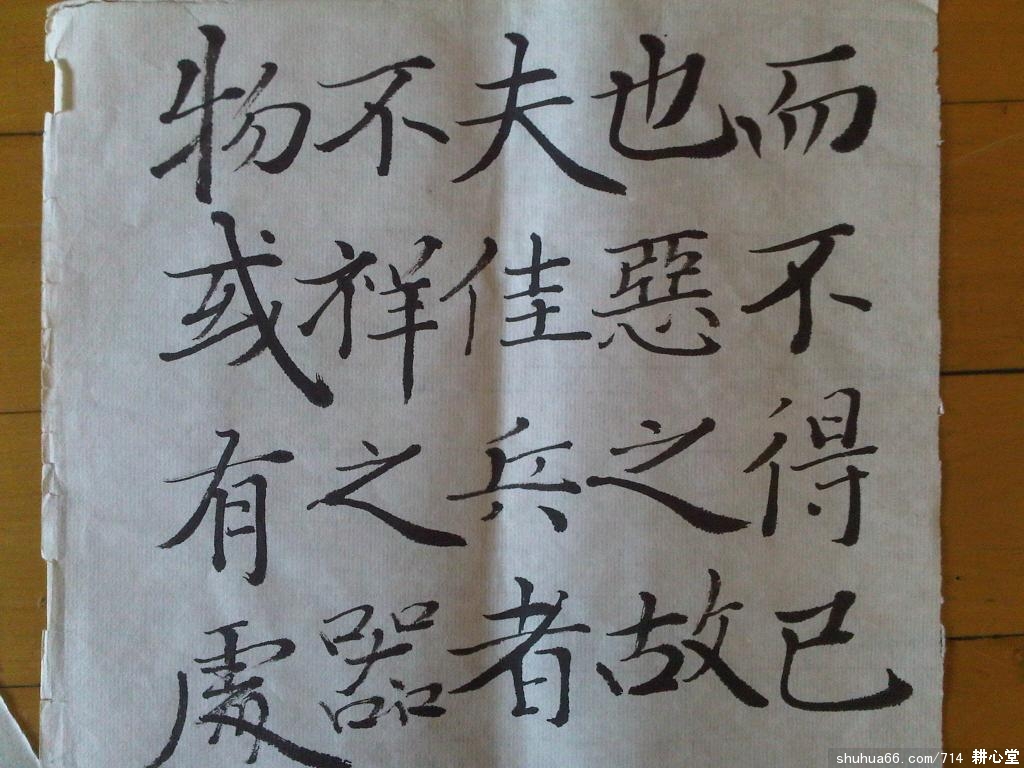 而不得已
也惡之故
夫佳兵者
不祥之器
物或有處
shuhua66.com/714 耕心堂